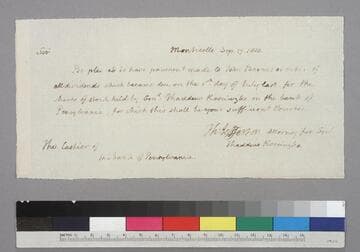 Sir Monticello Sep. 17. 1802.
Be pleased to have paiment made to John Barnes or order of
all dividends which became due on the 1st day of July last for the
shares of stock held by Genl. Thaddeus Kosciuzko in the bank of
Pensylvania for which this shall be your sufficient Voucher
Th: Jefferson attorney for Genl
Thaddeus Kosciuzko
The Cashier of
the bank of Pensylvania